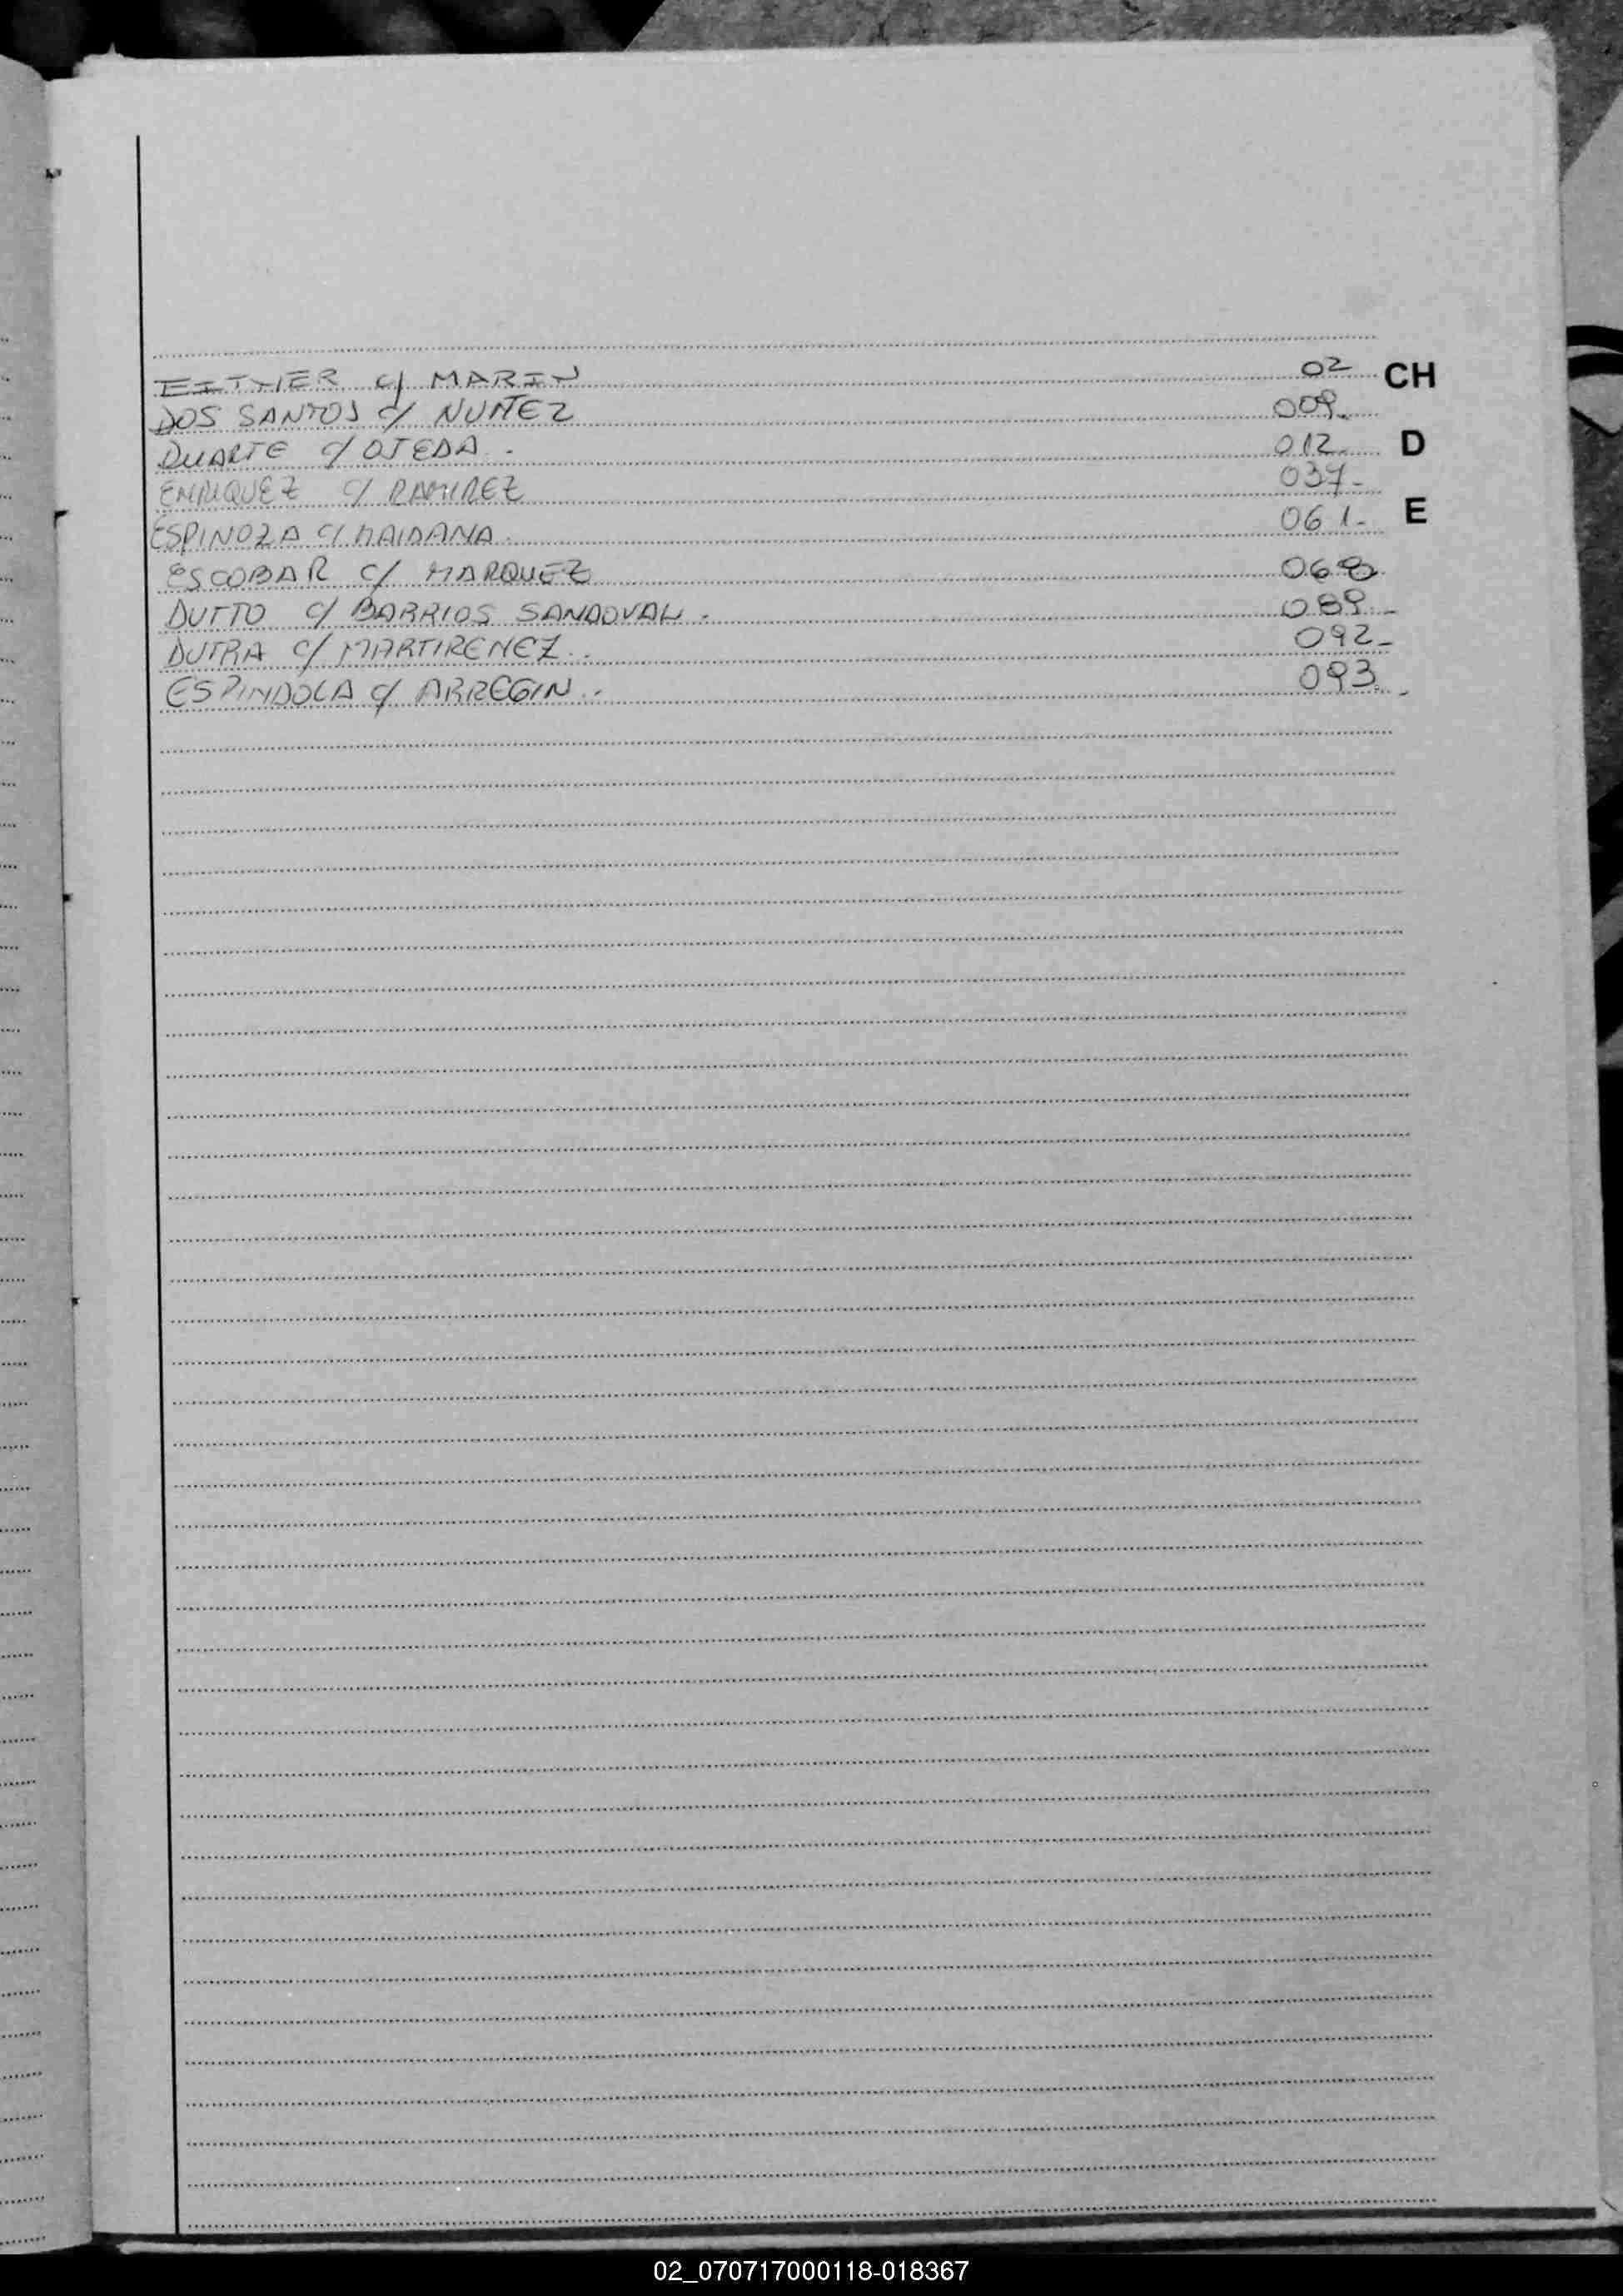 EITHER c/ MARIN 02 CH
DOS SANTOS c/ NUÑEZ 009.
DUARTE c/ OJEDA. 012. D
ENRIQUEZ c/ RAMIREZ 037-
ESPINOZA c/ MAIDANA. 061- E
ESCOBAR c/ MARQUEZ 068
DUTTO c/ BARRIOS SANDOVAL. 089.-
DUTRA c/ MARTIRENEZ.. 092-
ESPINDOLA c/ ARREGIN.. 093.-
02_070717000118-018367